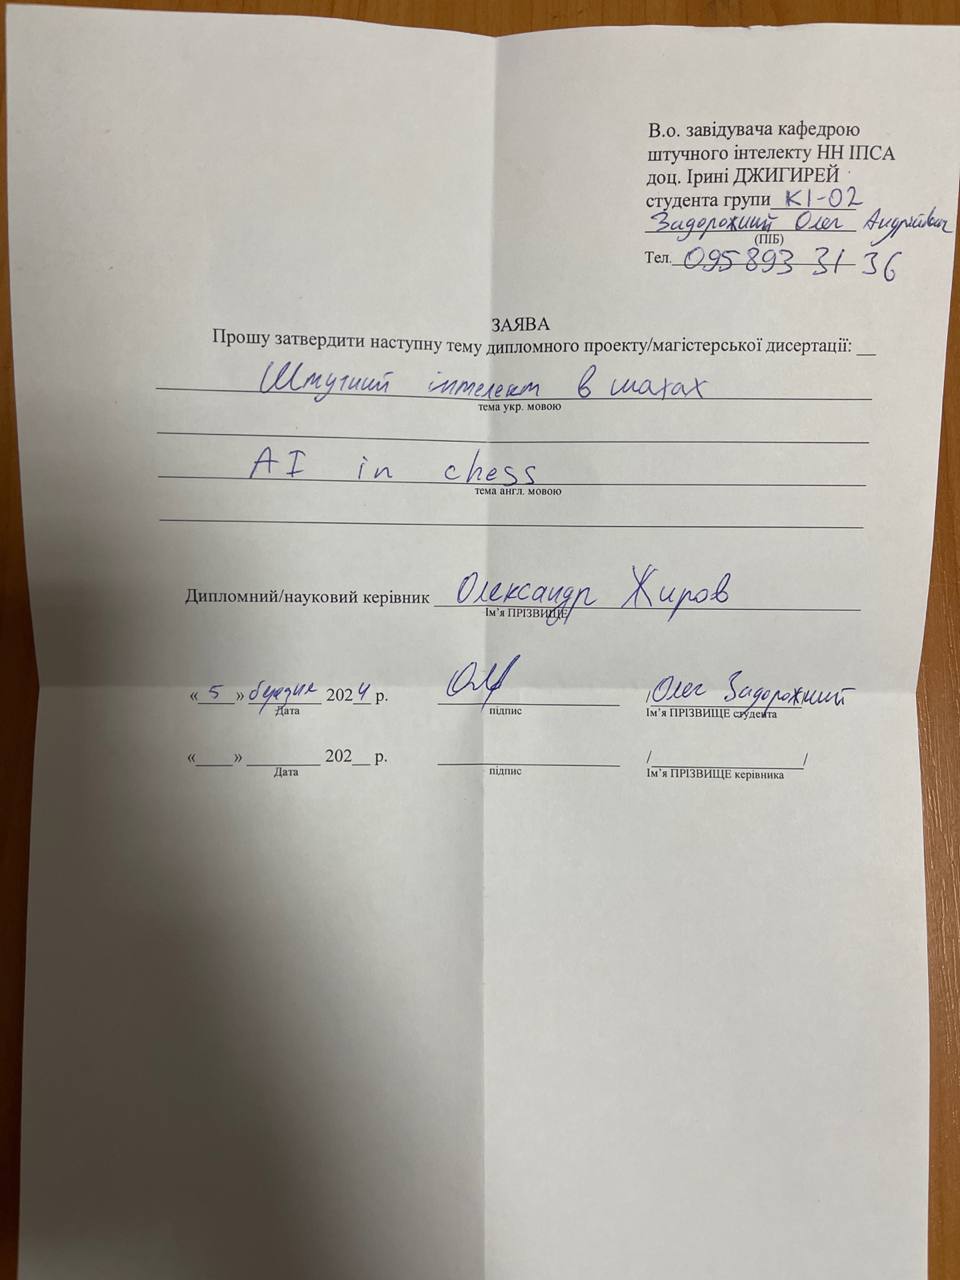 В.о. завідувача кафедрою
штучного інтелекту НН ІПСА
доц. Ірині ДЖИГИРЕЙ
студента групи КІ-02
Задорожний Олег Андрійович
(ПІБ)
Тел. 095 893 31 36
ЗАЯВА
Прошу затвердити наступну тему дипломного проекту/магістерської дисертації: __
Штучний інтелект в шахах
тема укр. мовою
AI in chess
тема англ. мовою
Дипломний/науковий керівник Олександр Жиров
Ім’я ПРІЗВИЩЕ
«5» 2024 р. Олег Задорожний
Дата підпис Ім’я ПРІЗВИЩЕ студента
«____» ________ 202__ р. ____________ /____________/
Дата підпис Ім’я ПРІЗВИЩЕ керівника